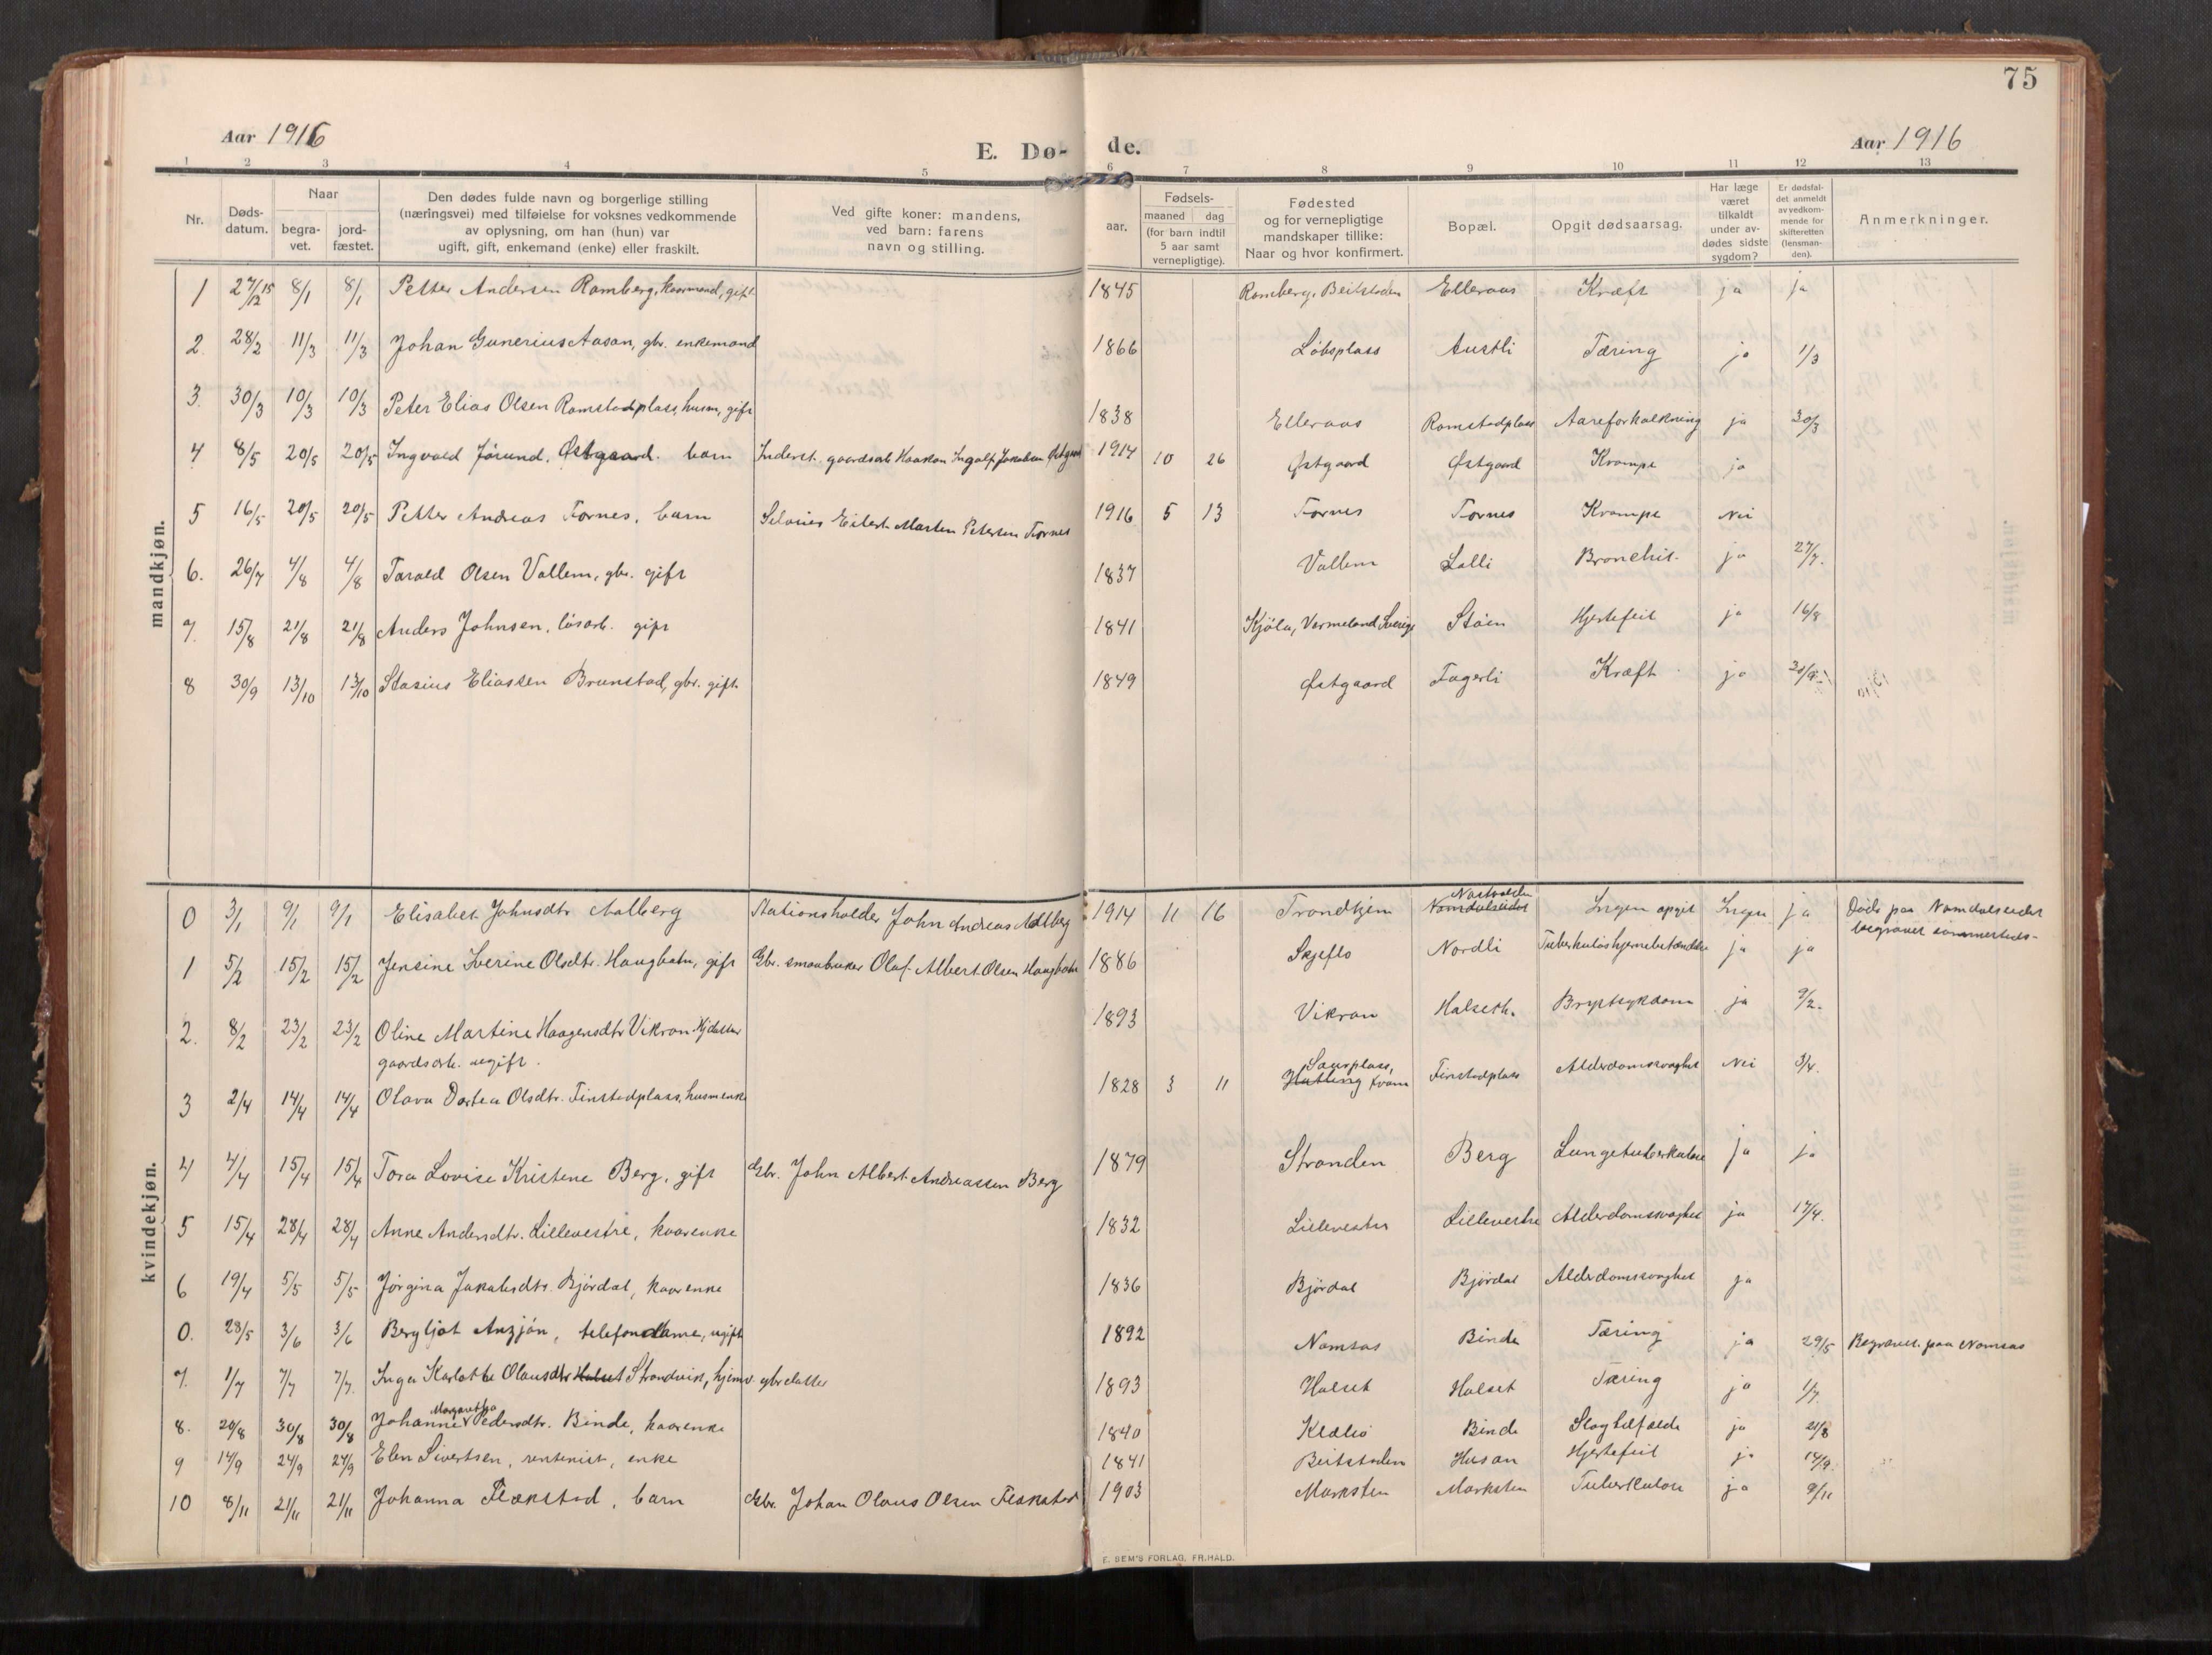 75
Aar 1916
E. Dø-
de.
Aar 1916
1 2 3 4 5 6 7 8 9 10 11 12 13
Nr.
Døds-
datum.
Naar
begra-
vet.
jord-
fæstet.
Den dødes fulde navn og borgerlige stilling
(næringsvei) med tilføielse for voksnes vedkommende
av oplysning, om han (hun) var
ugift, gift, enkemand (enke) eller fraskilt.
Ved gifte koner: mandens,
ved barn: farens
navn og stilling.
aar.
Fødsels-
maaned dag
(for barn indtil
5 aar samt
vernepligtige).
Fødested
og for vernepligtige
mandskaper tillike:
Naar og hvor konfirmert.
Bopæl.
Opgit dødsaarsag.
Har læge
været
tilkaldt
under av-
dødes sidste
sygdom?
Er dødsfal-
det anmeldt
av vedkom-
mende for
skifteretten
(lensman-
den).
Anmerkninger.
mandkjøn.
1 27/12 15 8/1 8/1 Petter Andersen Romberg, kaarmand, gift 1845 Romberg, Beitstaden Elleraas Kræft ja ja
2. 28/2 11/3 11/3 Johan Gunerius Aasan, gbr. enkemand 1866 Løbsplass Austli Tæring ja 1/3
3. 30/3 10/3 10/3 Peter Elias Olsen Romstadplass, husm, gift 1838 Elleraas Romstadplass Aareforkalkning ja 30/3
4 8/5 20/5 20/5 Ingvald Jørund. Østgaard. barn Inderst. gaardsarb Haakon Ingolf Jakobsen Østgaard 1914 10 26 Østgaard Østgaard Krampe ja
5 16/5 20/5 20/5 Petter Andreas Fornes, barn Eilert Marten Petersen Fornes 1916 5 13 Fornes Fornes Krampe Nei
6. 26/7 4/8 4/8 Tarald Olsen Vallem, gbr. gift 1837 Vallem Lalli Bronchit. ja 27/7.
7. 15/8 21/8 21/8 Anders Johnsen, løsarb. gift 1841 Kjøla, Vermeland Sverige Støen Hjertefeil ja 16/8
8 30/9 13/10 13/10 Stasius Eliassen Brunstad, gbr. gift 1849 Østgaard Fagerli Kræft ja
kvindekjøn.
0 3/1 9/1 9/1 Elisabet Johnsdtr Aalberg Stationsholder John Andreas Aalberg 1914 11 16 Trondhjem Namdalseidet Ingen opgit Ingen ja Døde paa Namdalseidet
begravet sammesteds-
1 5/2 15/2 15/2 Jensine Sverine Olsdtr. Haugbotn, gift Gbr. smaabruker Olaf Albert Olsen Haugbotn 1886 Skjeflo Nordli Tuberkuløs hjernebetændelse ja ja
2. 8/2 23/2 23/2 Oline Martine Haagensdtr Vikran
gaardsarb. ugift. 1893 Vikran Halseth. Brystsykdom ja 9/2.
3 2/4 14/4 14/4 Olava Dortea Olsdtr. Finstadplass, husmenke 1828 3 11 Saursplass, Kvam Finstadplass Alderdomssvaghet Nei 3/4.
4 4/4 15/4 15/4 Tora Lovise Kristene Berg, gift Gbr. John Albert Andreassen Berg 1879 Stranden Berg Lungetuberkulose ja ja
5 15/4 28/4 28/4 Anne Andersdtr. Lillevestre, kaarenke 1832 Lillevestre Lillevestre Alderdomssvaghet ja 17/4.
6 19/4 5/5 5/5 Jørgina Jakobsdtr. Bjørdal, kaarenke 1836 Bjørdal Bjørdal Alderdomssvaghet ja
0. 28/5 3/6 3/6 Bergljot Anzjøn, telefondame, ugift 1892 Namsos Binde Tæring ja 29/5 Begravet. paa Namsos
7. 1/7 7/7 7/7. Inga Karlotte Olausdtr Halset Strandvik, hjemv. gbrdatter 1893 Halset Halset Tæring ja 1/7.
8. 20/8 30/8 30/8 Johanne Margretha Pedersdtr. Binde, kaarenke 1840 Klælio Binde Slagtilfælde ja 21/8
9 14/9 24/9 24/9 Elen Sivertsen, rentenist, enke 1841 Beitstaden Husan Hjertefeil ja 14/9.
10 8/11 21/11 21/11 Johanna Flækstad, barn Gbr. Johan Olaus Olsen Flækstad 1903 Marksten Marksten Tuberkulose ja 9/11
E. SEM'S FORLAG, FR.HALD.